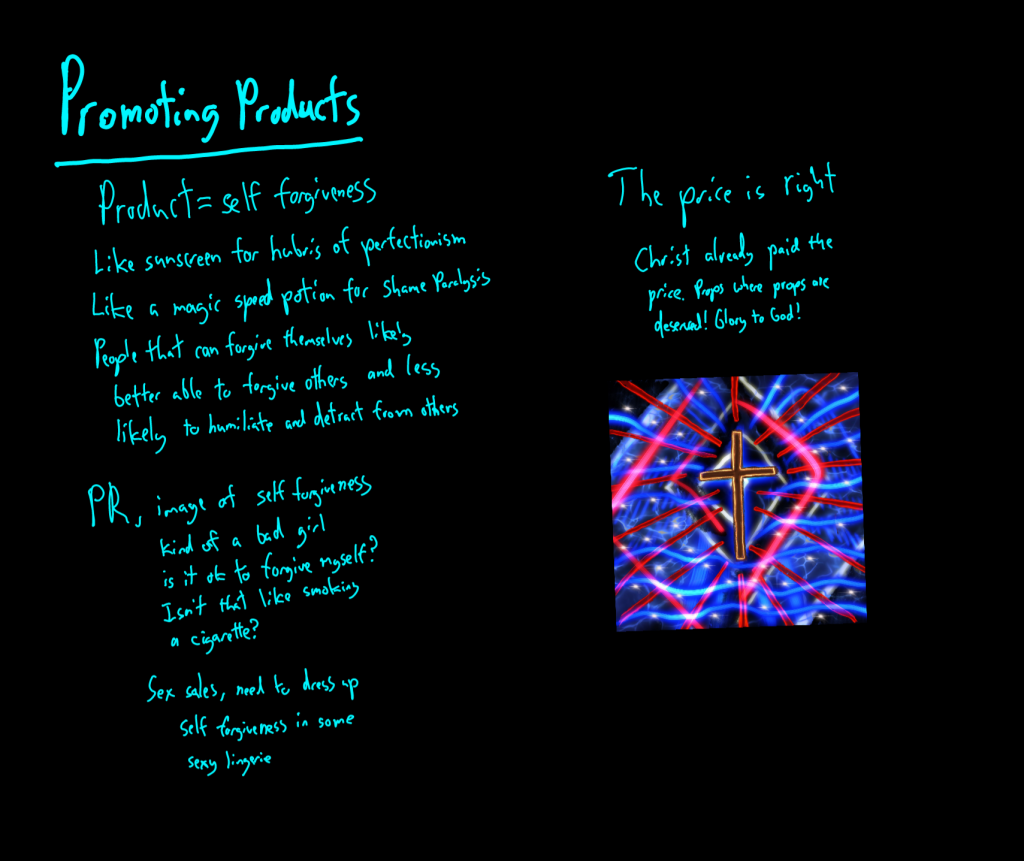 Promoting Products
Product = self forgiveness
Like sunscreen for hubris of perfectionism
Like a magic speed potion for shame Paralysis
People that can forgive themselves likely
better able to forgive others and less
likely to humiliate and detract from others
PR, image of self forgiveness
kind of a bad girl
is it ok to forgive myself?
Isn't that like smoking
a cigarette?
Sex sales, need to dress up
self forgiveness in some
sexy lingerie
The price is right
Christ already paid the
price. Props where props are
deserved! Glory to God!